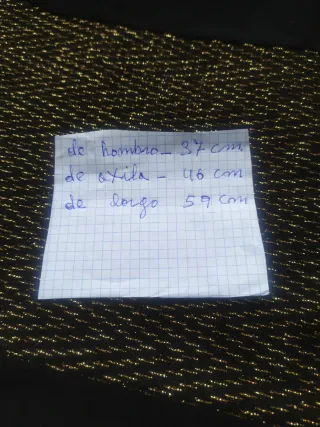 de hombro - 37 cm
de axila - 46 cm
de largo 59 cm